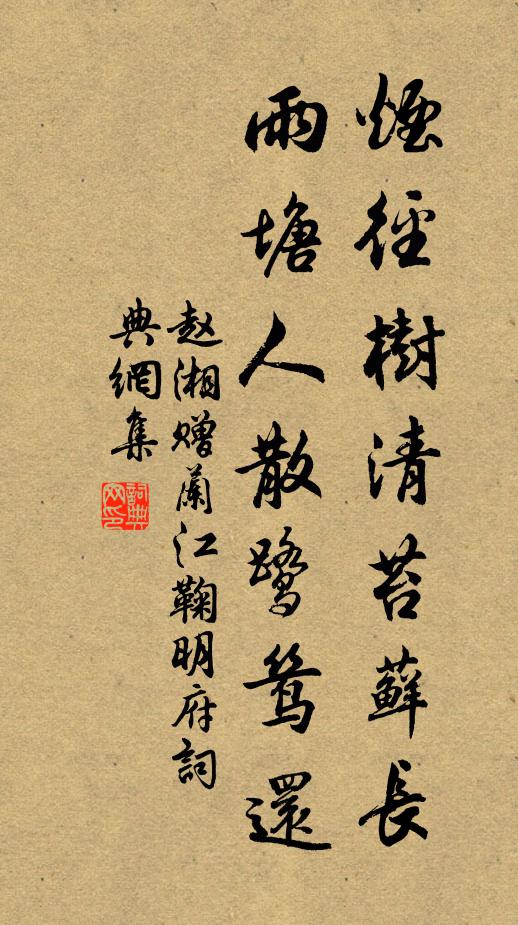 煙徑樹清苔蘚長
雨塘人散鷺鷥還
赵湘贈蘭江鞠明府詞
典網集
詞典
网印